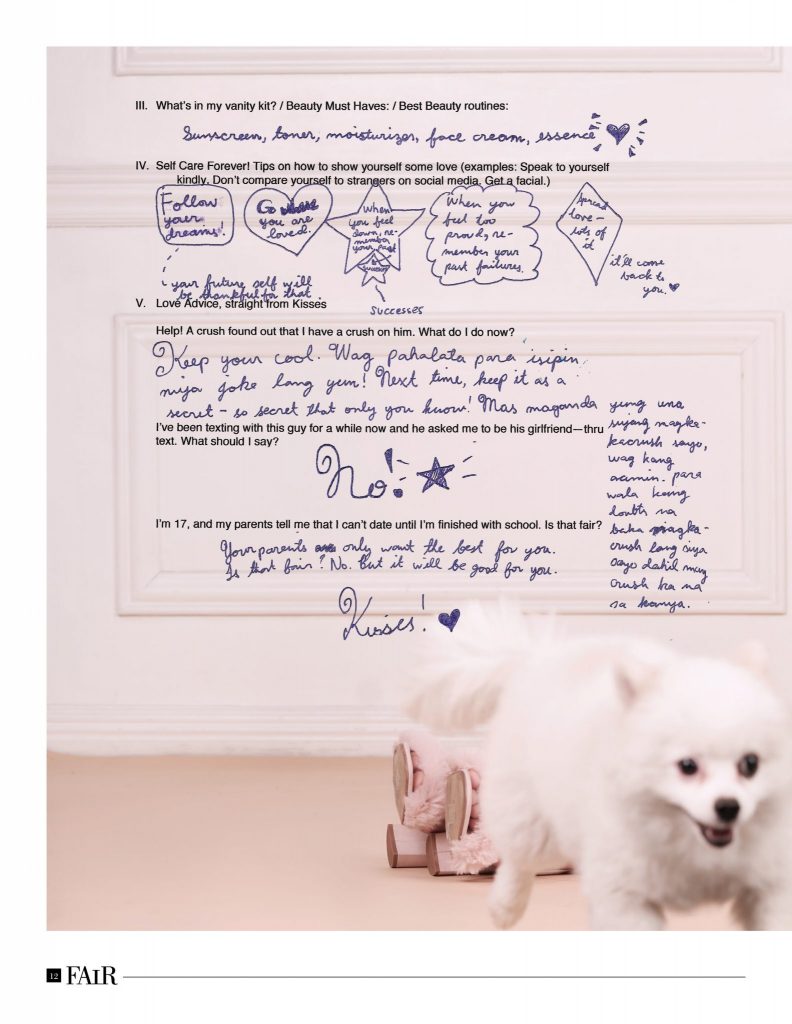 III. What's in my vanity kit? / Beauty Must Haves: / Best Beauty routines:
Sunscreen, toner, moisturizer, face cream, essence
IV. Self Care Forever! Tips on how to show yourself some love (examples: Speak to yourself
kindly. Don't compare yourself to strangers on social media. Get a facial.)
Follow
your
dreams!
your future self will
be thankful for that.
Go where
you are
loved.
When
you feel
down, re-
member
your past
successes
When you
feel too
proud, re-
member your
past failures.
Spread
love -
lots of
it
it'll come
back to
you.
V. Love Advice, straight from Kisses
Help! A crush found out that I have a crush on him. What do I do now?
Keep your cool. Wag pahalata para isipin
niya joke lang yun! Next time, keep it as a
secret - so secret that only you know! Mas maganda
yung una
siyang magka-
kacrush sayo,
wag kang
aamin. para
wala kang
doubts na
baka magka-
crush lang siya
sayo dahil may
crush ka na
sa kanya.
I've been texting with this guy for a while now and he asked me to be his girlfriend—thru
text. What should I say?
No!
I'm 17, and my parents tell me that I can't date until I'm finished with school. Is that fair?
Your parents only want the best for you.
Is that fair? No. but it will be good for you.
Kisses!
12 FAIR